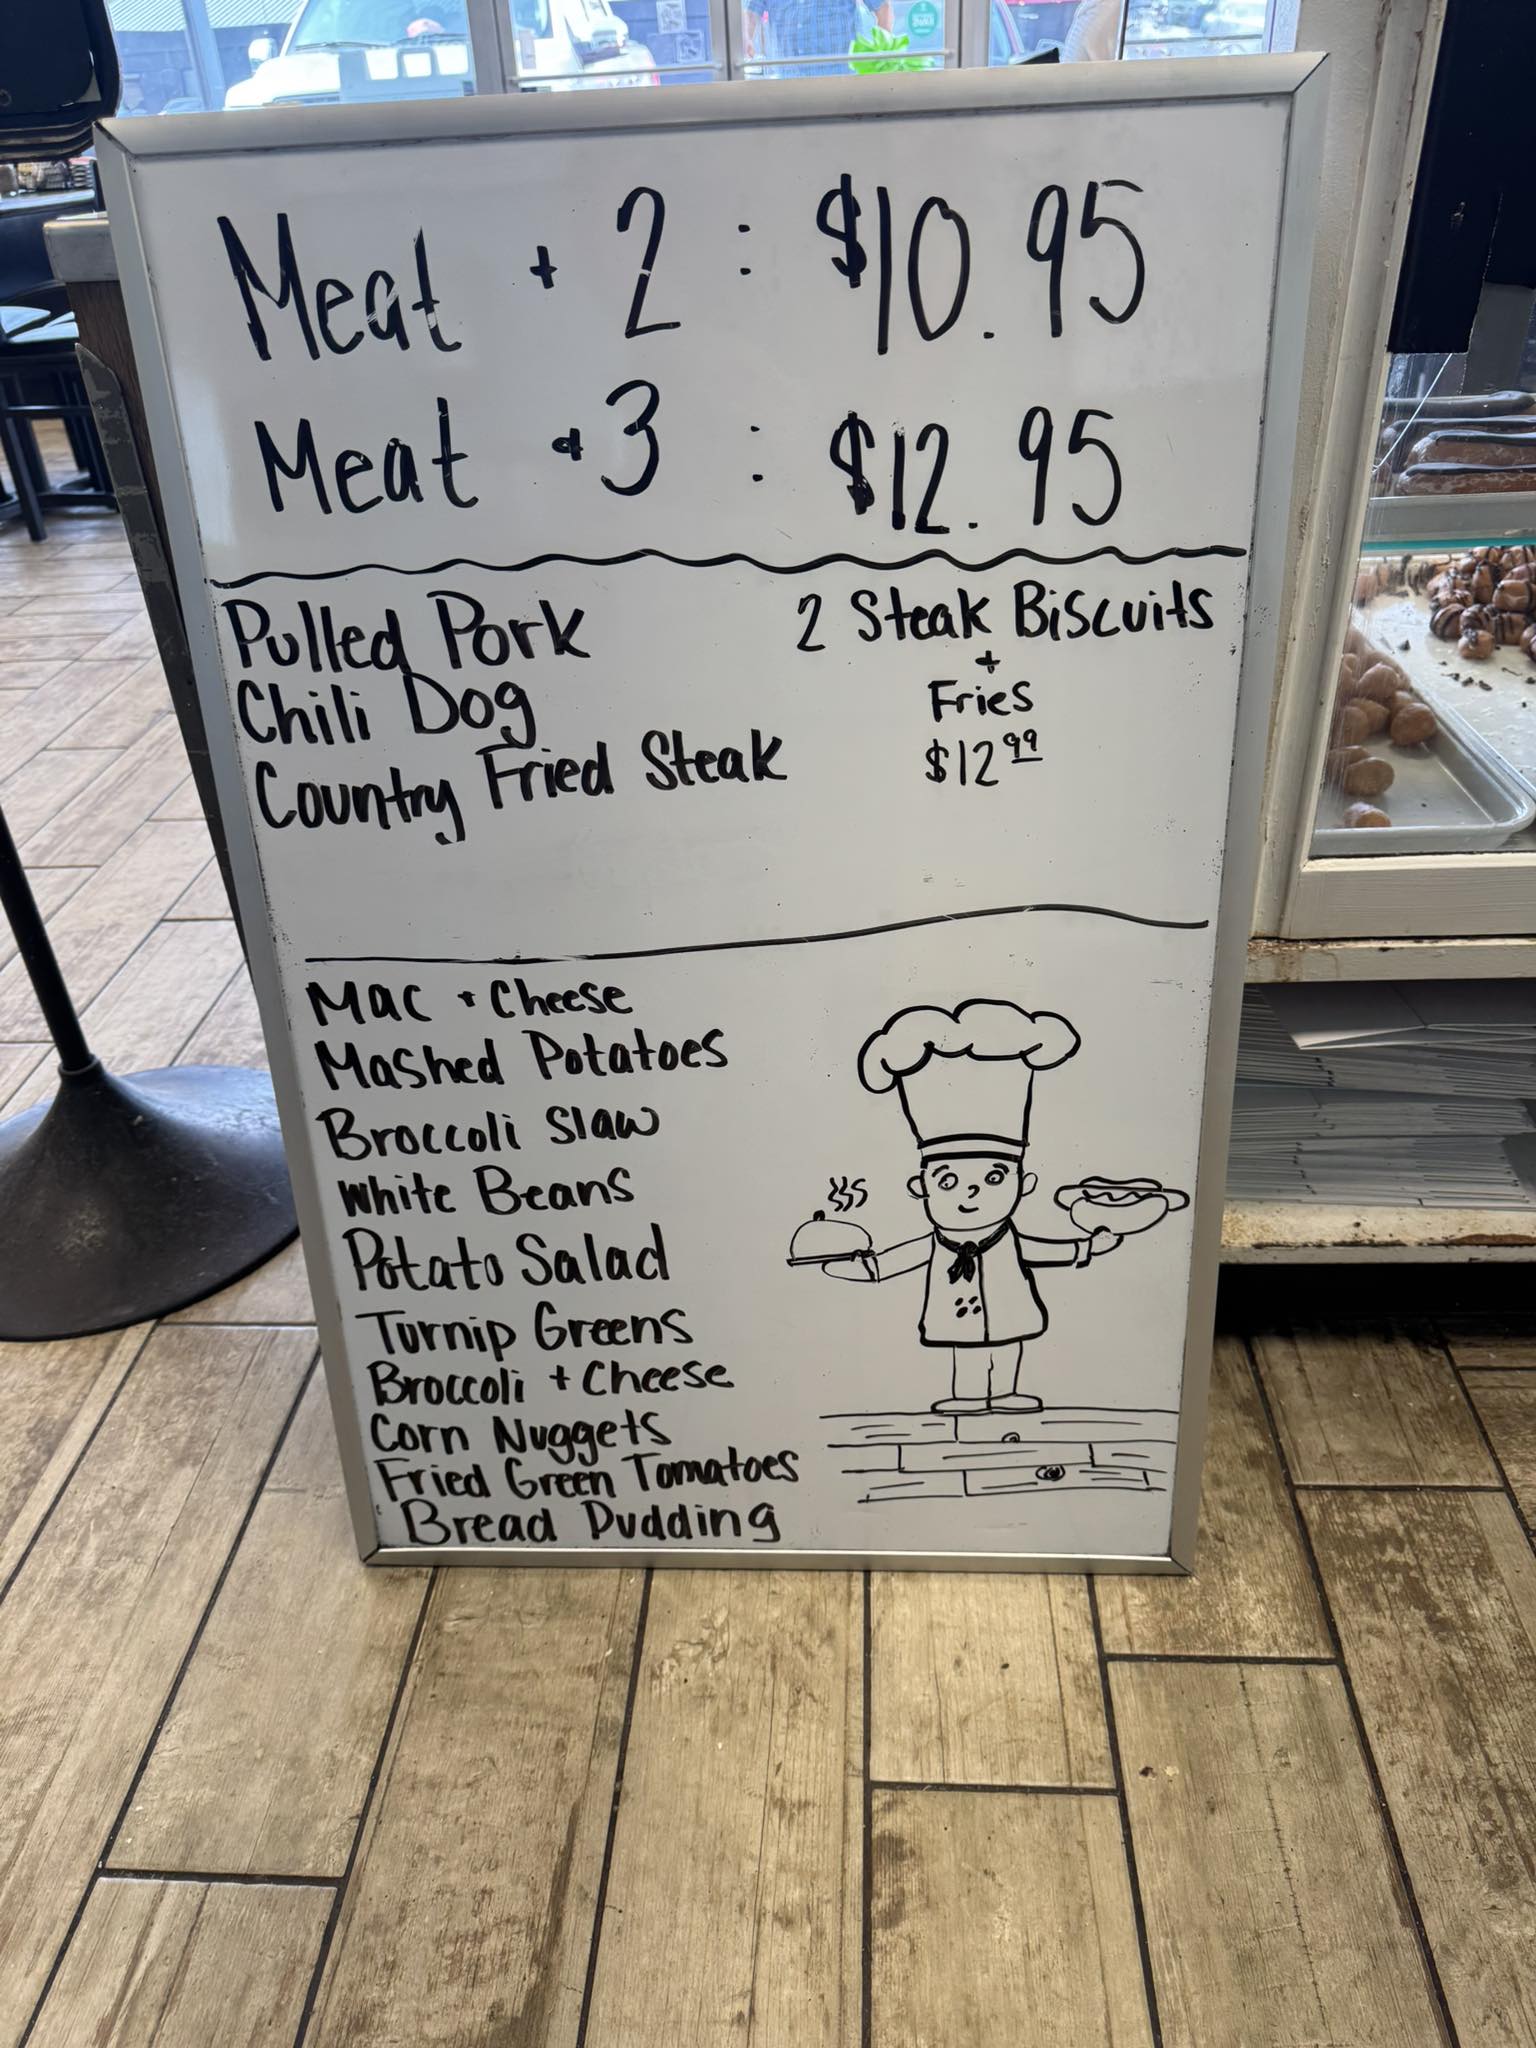 Meat + 2 : $10.95
Meat + 3 : $12.95
Pulled Pork
Chili Dog
Country Fried Steak
2 Steak Biscuits
+
Fries
$12 99
Mac + Cheese
Mashed Potatoes
Broccoli Slaw
White Beans
Potato Salad
Turnip Greens
Broccoli + Cheese
Corn Nuggets
Fried Green Tomatoes
Bread Pudding